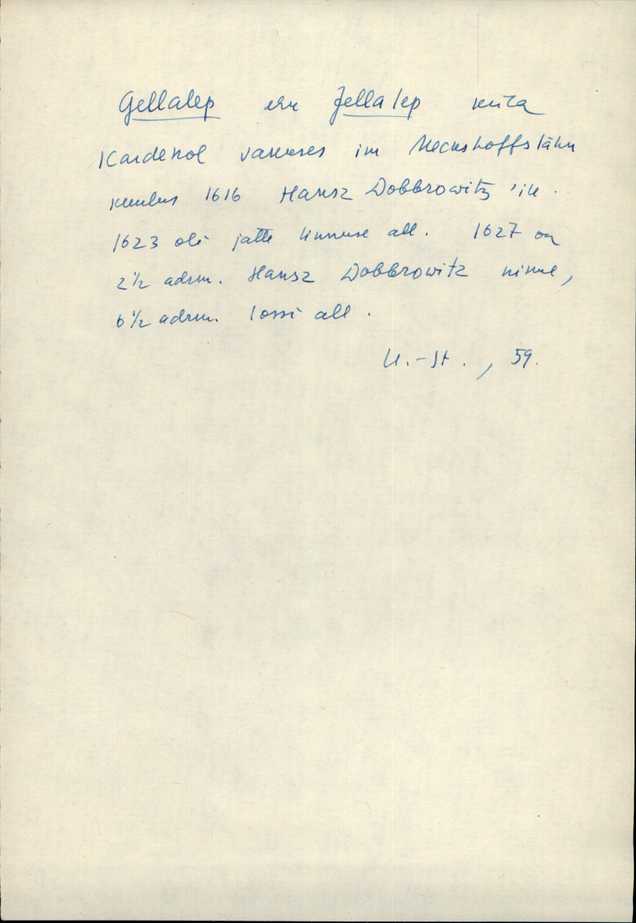 Gellalep ehk Jellalep küla
Kardenol vakuses im Neckshofflähn
kuulus 1616 Hansz Dobbrowitz'ile.
1623 oli jälle linnuse all. 1627 on
2½ adrm. Hansz Dobbrowitz nime,
6½ adrm. lossi all.
U.-St., 59.